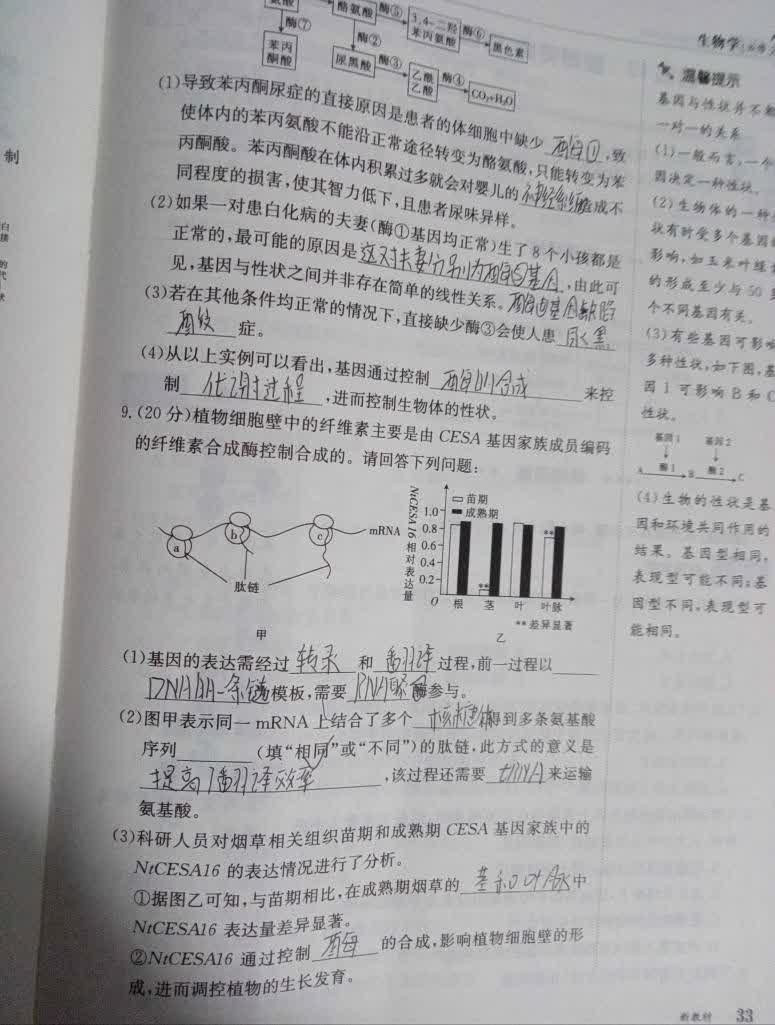 酪氨酸 酶⑤ 3,4-二羟苯丙氨酸 酶⑥ 黑色素
酶⑦ 酶②
苯丙酮酸 尿黑酸 酶③ 乙酰乙酸 酶④ CO₂+H₂O
(1)导致苯丙酮尿症的直接原因是患者的体细胞中缺少 酶① ,致
使体内的苯丙氨酸不能沿正常途径转变为酪氨酸,只能转变为苯
丙酮酸。苯丙酮酸在体内积累过多就会对婴儿的 神经系统 造成不
同程度的损害,使其智力低下,且患者尿味异样。
(2)如果一对患白化病的夫妻(酶①基因均正常)生了8个小孩都是
正常的,最可能的原因是 这对夫妻分别为酶⑤基因 ,由此可
见,基因与性状之间并非存在简单的线性关系。 酶⑥基因缺陷
(3)若在其他条件均正常的情况下,直接缺少酶③会使人患 尿黑
症。
(4)从以上实例可以看出,基因通过控制 酶的合成 来控
制 代谢过程 ,进而控制生物体的性状。
9.(20分)植物细胞壁中的纤维素主要是由CESA基因家族成员编码
的纤维素合成酶控制合成的。请回答下列问题:
a b c mRNA
肽链
甲
NtCESA16相对表达量
苗期
成熟期
1.0
0.8
0.6
0.4
0.2
O 根 茎 叶 叶脉
** **
**差异显著
乙
(1)基因的表达需经过 转录 和 翻译 过程,前一过程以
DNA的一条链 为模板,需要 RNA聚合 酶参与。
(2)图甲表示同一mRNA上结合了多个 核糖体 得到多条氨基酸
序列 (填“相同”或“不同”)的肽链,此方式的意义是
提高了翻译效率 ,该过程还需要 tRNA 来运输
氨基酸。
(3)科研人员对烟草相关组织苗期和成熟期CESA基因家族中的
NtCESA16的表达情况进行了分析。
①据图乙可知,与苗期相比,在成熟期烟草的 茎和叶脉 中
NtCESA16表达量差异显著。
②NtCESA16通过控制 酶 的合成,影响植物细胞壁的形
成,进而调控植物的生长发育。
生物学
温馨提示
基因与性状并不
一对一的关系
(1)一般而言,一个
因决定一种性状。
(2)生物体的一种
状有时受多个基因
影响,如玉米叶绿
的形成至少与50
个不同基因有关。
(3)有些基因可影响
多种性状,如下图,基
因1可影响B和C
性状。
基因1 基因2
A 酶1 B 酶2 C
(4)生物的性状是基
因和环境共同作用的
结果。基因型相同,
表现型可能不同;基
因型不同,表现型可
能相同。
新教材 33